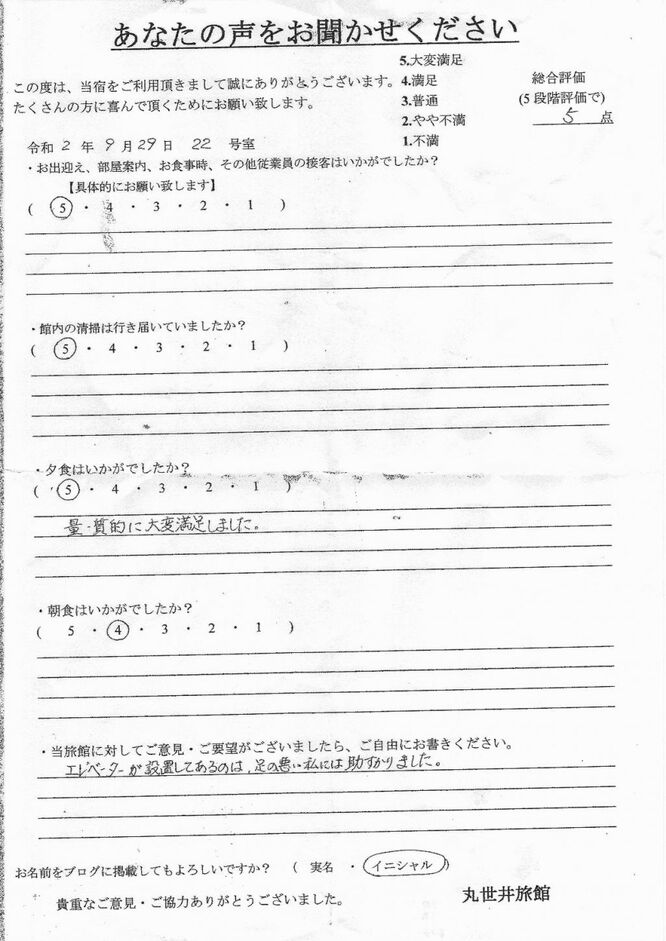 あなたの声をお聞かせください
5.大変満足
この度は、当宿をご利用頂きまして誠にありがとうございます。 4.満足 総合評価
たくさんの方に喜んで頂くためにお願い致します。 3.普通 (5段階評価で)
2.やや不満 5 点
令和 2 年 9 月 29 日 22 号室 1.不満
・お出迎え、部屋案内、お食事時、その他従業員の接客はいかがでしたか？
【具体的にお願い致します】
( 5 ・ 4 ・ 3 ・ 2 ・ 1 )
・館内の清掃は行き届いていましたか？
( 5 ・ 4 ・ 3 ・ 2 ・ 1 )
・夕食はいかがでしたか？
( 5 ・ 4 ・ 3 ・ 2 ・ 1 )
量・質的に大変満足しました。
・朝食はいかがでしたか？
( 5 ・ 4 ・ 3 ・ 2 ・ 1 )
・当旅館に対してご意見・ご要望がございましたら、ご自由にお書きください。
エレベーターが設置してあるのは、足の悪い私には助すかりました。
お名前をブログに掲載してもよろしいですか？ ( 実名 ・ イニシャル )
貴重なご意見・ご協力ありがとうございました。 丸世井旅館